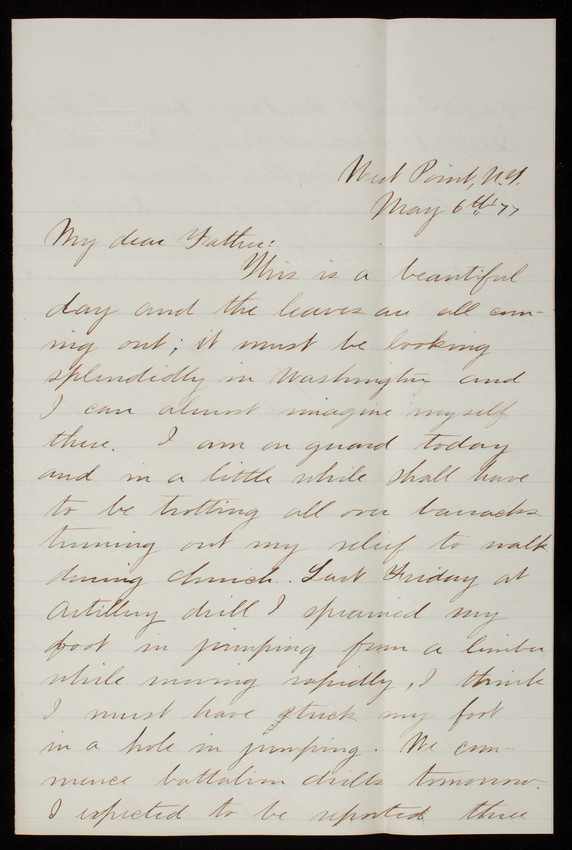 West Point, N.Y.
May 6th 77
My dear Father:
This is a beautiful
day and the leaves are all com-
ing out; it must be looking
splendidly in Washington and
I can almost imagine myself
there. I am on guard today
and in a little while shall have
to be trotting all over barracks
turning out my relief to walk
during church. Last Friday at
Artillery drill I sprained my
foot in jumping from a limber
while moving rapidly, I think
I must have stuck my foot
in a hole in jumping. We com-
mence battalion drills tomorrow.
I expected to be reported three